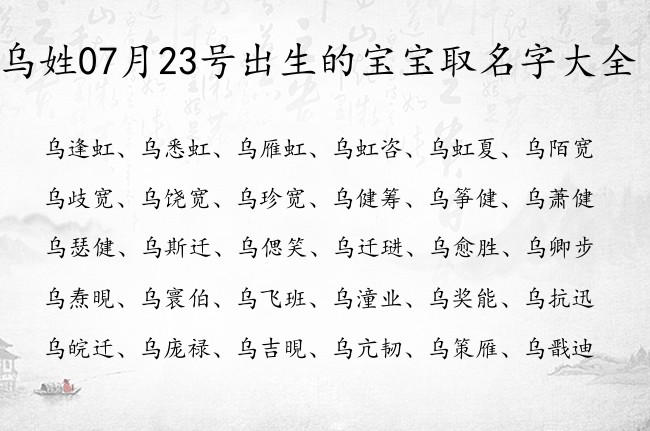 乌姓07月23号出生的宝宝取名字大全
乌逢虹、乌悉虹、乌雁虹、乌虹咨、乌虹夏、乌陌宽
乌歧宽、乌饶宽、乌珍宽、乌健筹、乌筝健、乌萧健
乌瑟健、乌斯迁、乌偲笑、乌迁琎、乌愈胜、乌卿步
乌焘晛、乌寰伯、乌飞班、乌潼业、乌奖能、乌抗迅
乌皖迁、乌庞禄、乌吉晛、乌亢韧、乌策雁、乌戬迪